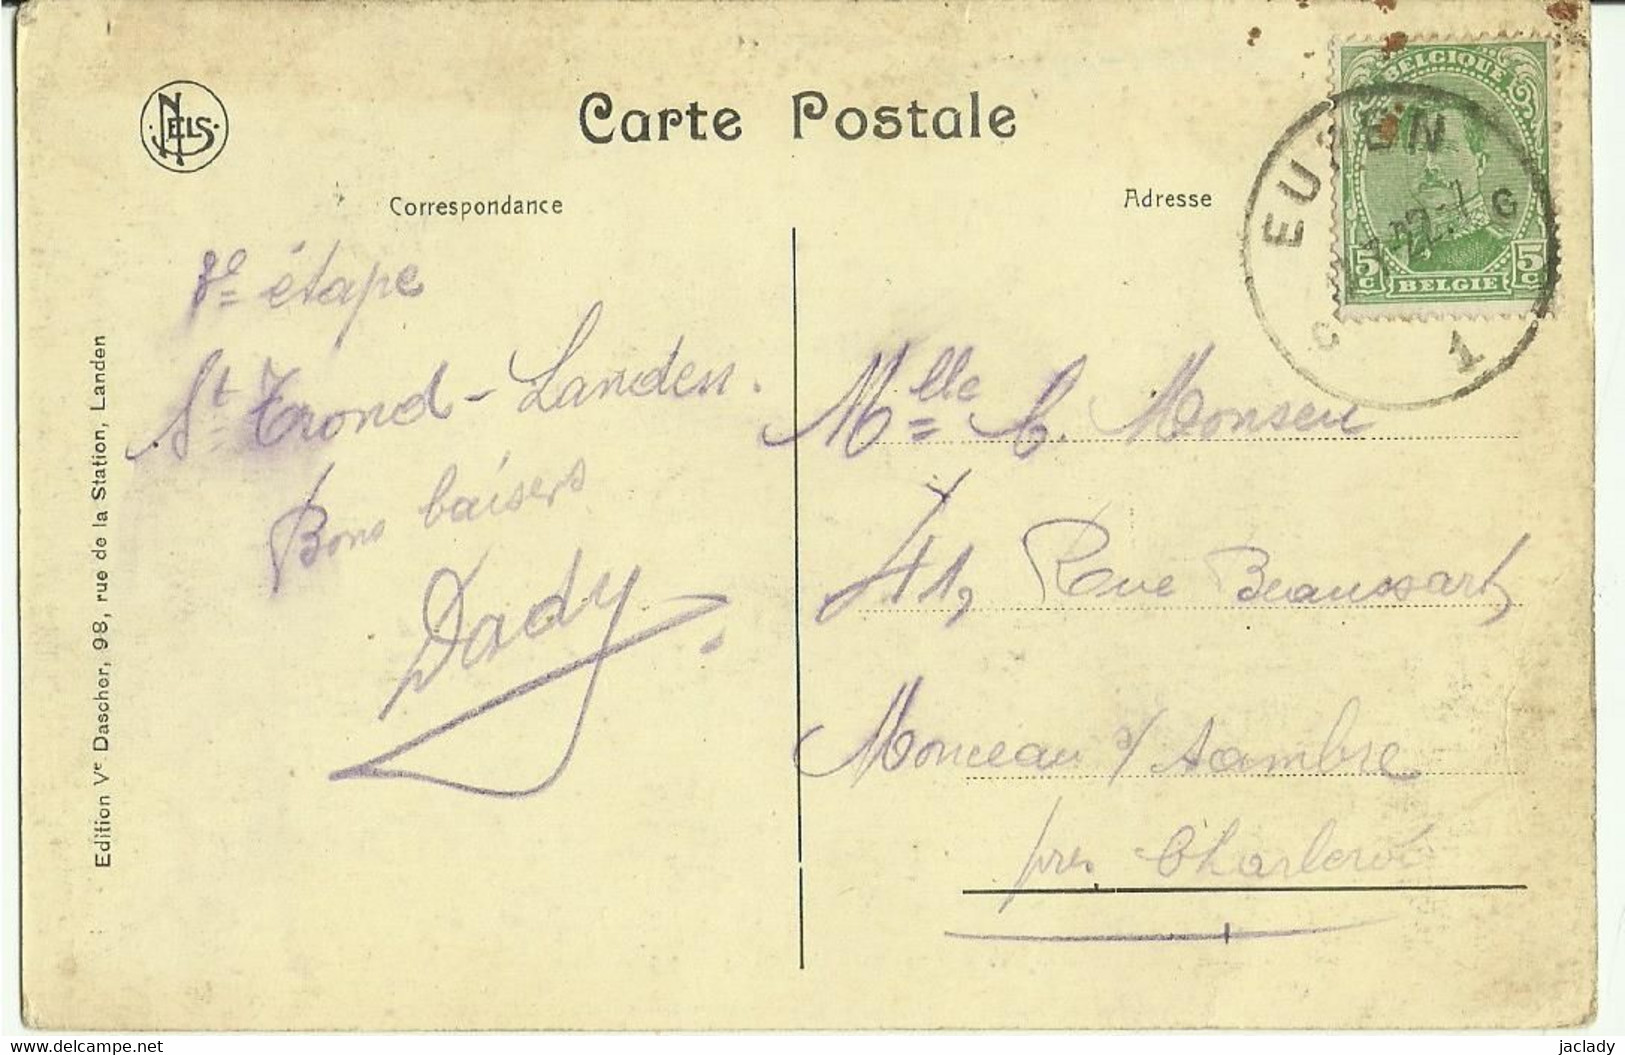 NELS
Carte Postale
Correspondance
Adresse
BELGIQUE
5c BELGIE 5c
EUPEN
1
étape
St Trond - Landen.
Bons baisers
Dady
Mlle C. Monseu
41, Rue Beaussart,
Monceau s/ Sambre
près Charleroi
Edition Ve Dascher, 98, rue de la Station, Landen
https://www.delcampe.net
jaclady